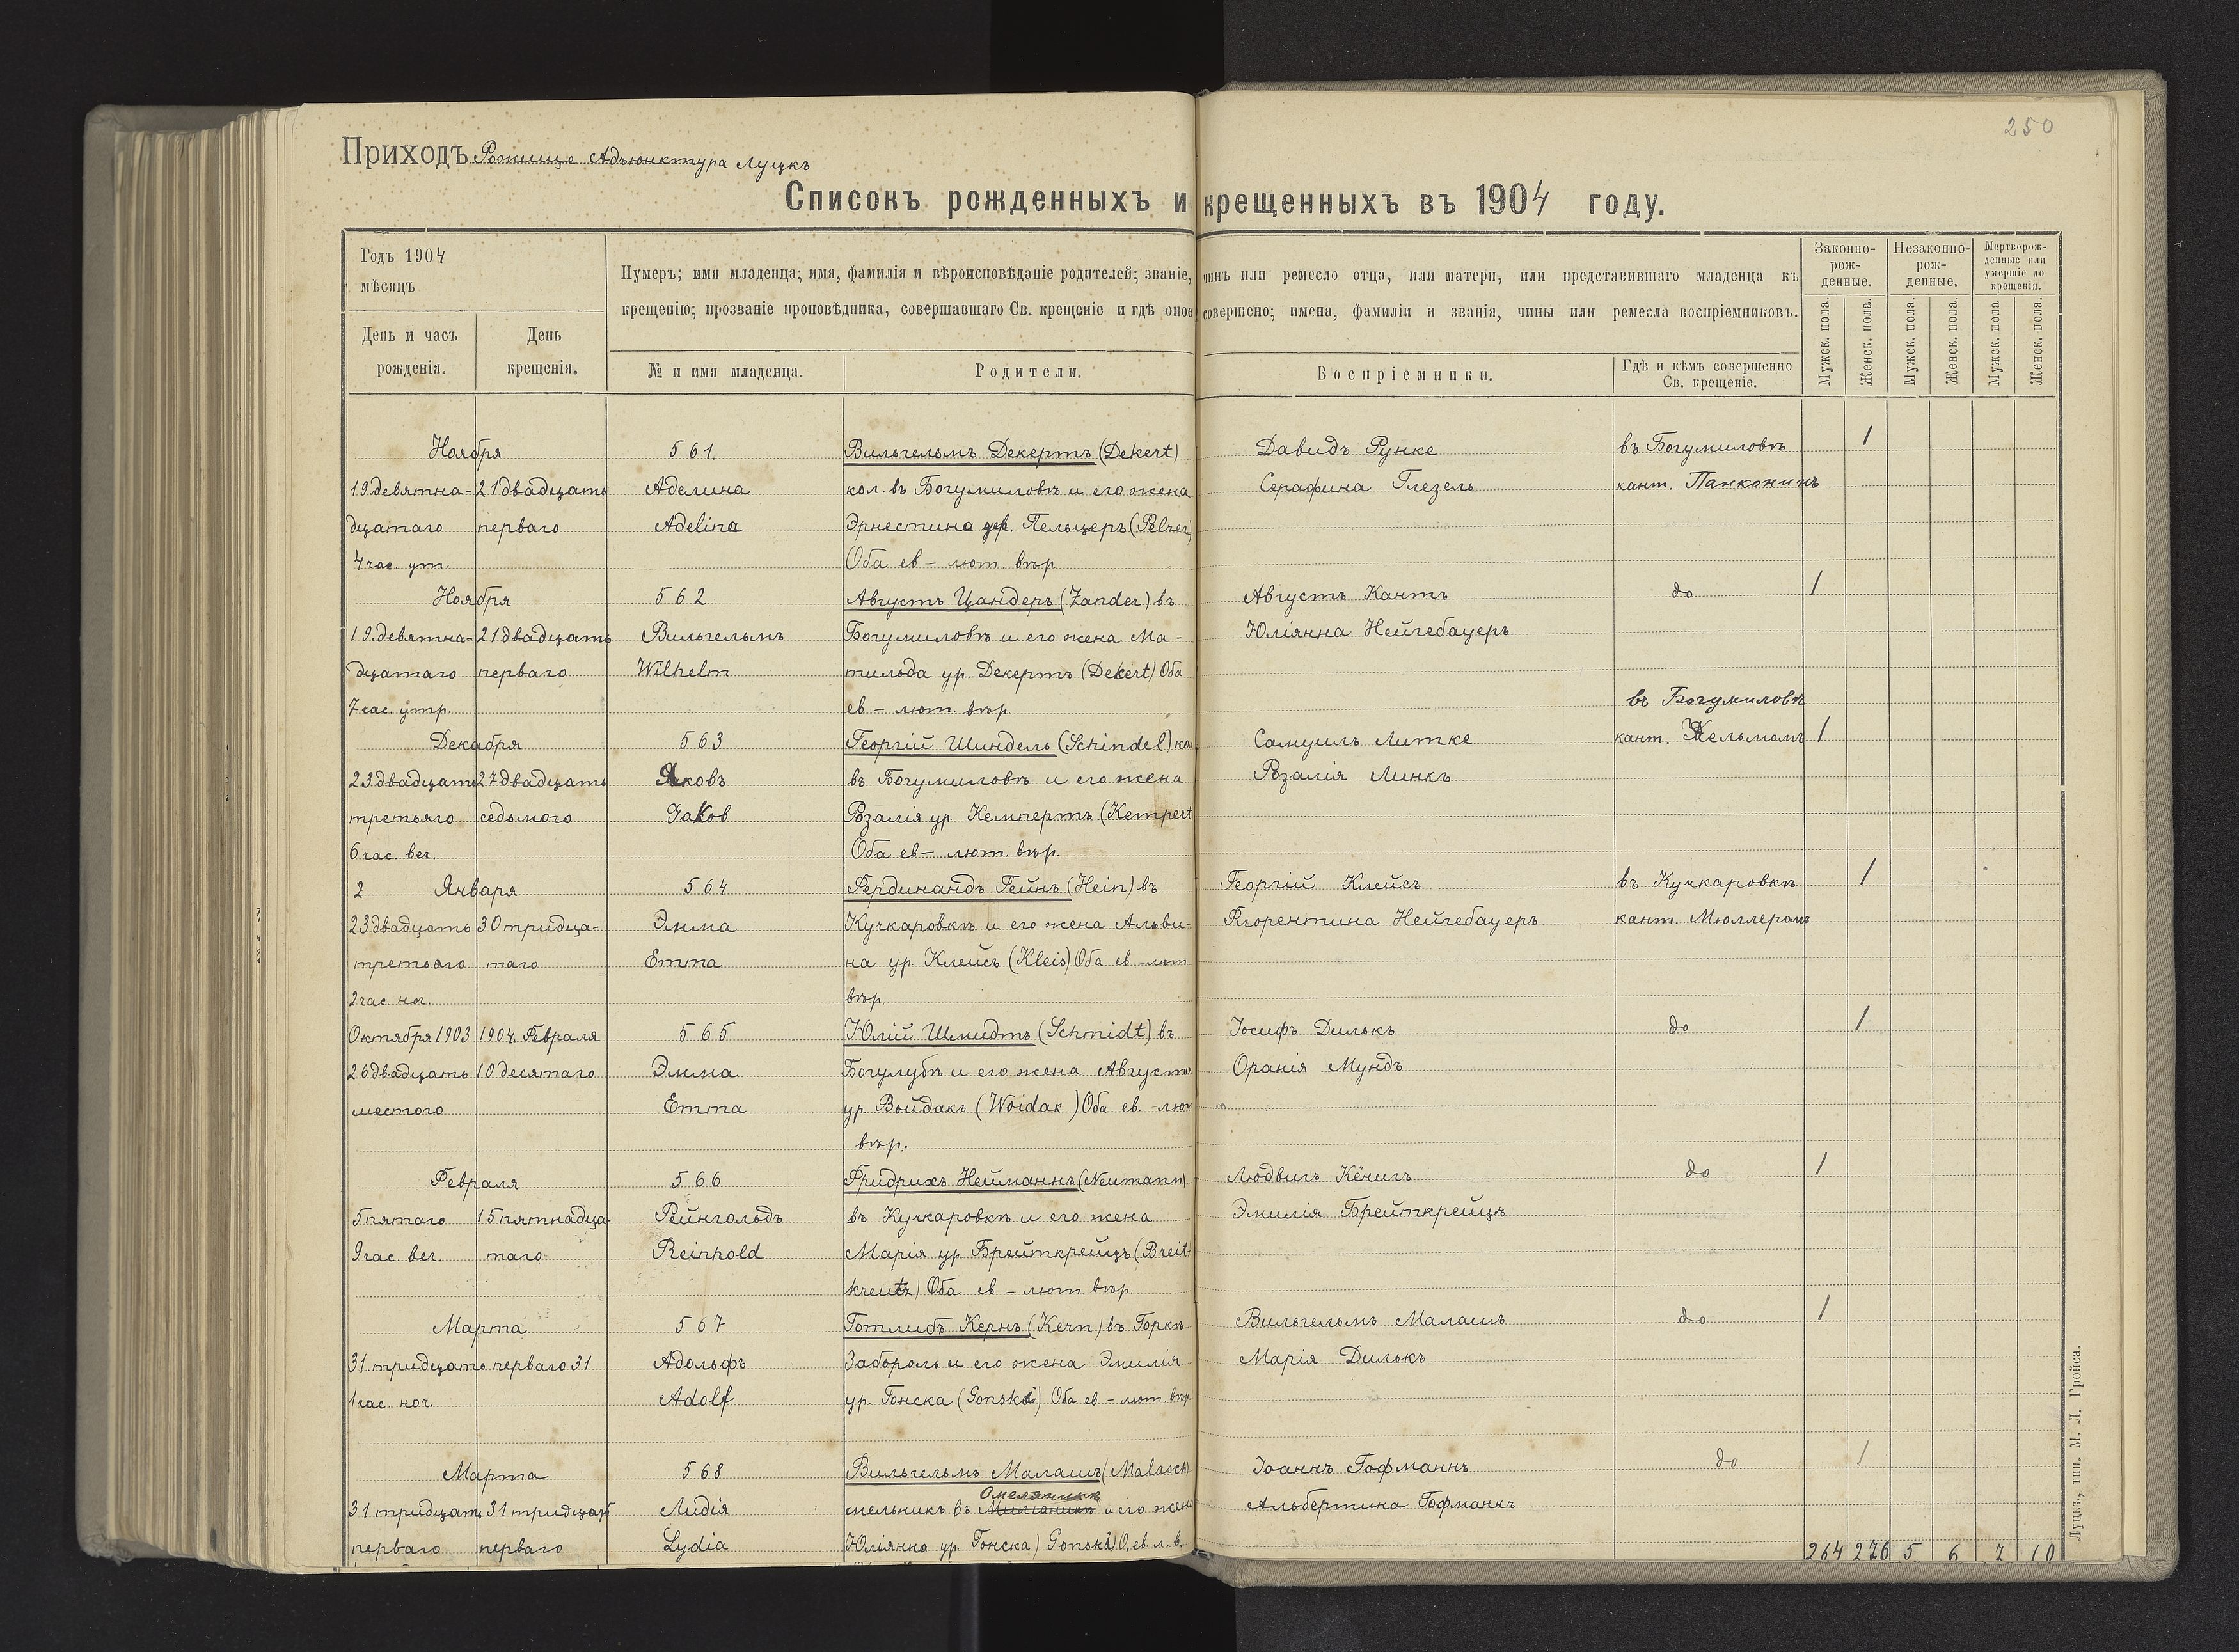 250
Приходъ Рожище Адъюнктура Луцкъ
Списокъ рожденныхъ и крещенныхъ въ 1904 году.
Годъ 1904
мѣсяцъ
День и часъ рожденія.
День крещенія.
Нумеръ; имя младенца; имя, фамилія и вѣроисповѣданіе родителей; званіе, чинъ или ремесло отца, или матери, или представившаго младенца къ
крещенію; прозваніе проповѣдника, совершавшаго Св. крещеніе и гдѣ оное совершено; имена, фамиліи и званія, чины или ремесла воспріемниковъ.
№ и имя младенца.
Родители.
Воспріемники.
Гдѣ и кѣмъ совершенно Св. крещеніе.
Законно-рож-денные.
Незаконно-рож-денные.
Мертворож-денные или умершіе до крещенія.
Мужск. пола. Женск. пола. Мужск. пола. Женск. пола. Мужск. пола. Женск. пола.
Ноября 561. Вильгельмъ Декертъ (Dekert) Давидъ Рунке въ Богумиловкѣ 1
19 девятна- 21 двадцать Аделина кол. въ Богумиловкѣ и его жена Серафина Глезель кант. Панконинъ
дцатаго перваго Adelina Эрнестина ур. Пельцеръ (Pelzer)
4 час. ут. Оба ев – лют. вѣр
Ноября 562 Августъ Цандеръ (Zander) въ Августъ Кантъ до 1
19. девятна- 21 двадцать Вильгельмъ Богумиловкѣ и его жена Ма- Юліянна Нейгебауеръ
дцатаго перваго Wilhelm тильда ур. Декертъ (Dekert) Оба
7 час. утр. ев – лют. вѣр въ Богумиловкѣ
Декабря 563 Георгій Шиндель (Schindel) кол Самуилъ Литке кант. Жельмомъ 1
23 двадцать 27 двадцать Яковъ въ Богумиловкѣ и его жена Розалія Линкъ
третьяго седьмого Jakob Розалія ур. Кемпертъ (Kempert
6 час. веч. Оба ев – лют. вѣр
2 Января 564 Фердинандъ Гейнъ (Hein) въ Георгій Клейсъ въ Кучкаровкѣ 1
23 двадцать 30 тридца- Эмма Кучкаровкѣ и его жена Альви- Флорентина Нейгебауеръ кант. Мюллеромъ
третьяго таго Emma на ур. Клейсъ (Kleis) Оба ев – лют.
2 час. ноч. вѣр.
Октября 1903 1904. Февраля 565 Юлій Шмидтъ (Schmidt) въ Іосифъ Дилькъ до 1
26 двадцать 10 десятаго Эмма Богулубѣ и его жена Августа Оранія Мундъ
шестого Emma ур Войдакъ (Woidak) Оба ев. – лют
вѣр.
Февраля 566 Фридрихъ Нейманнъ (Neumann) Людвигъ Кёнигъ до 1
5 пятаго 15 пятнадца- Рейнгольдъ въ Кучкаровкѣ и его жена Эмилія Брейткрейцъ
9 час. веч. таго Reinhold Марія ур. Брейткрейцъ (Breit-
kreutz) Оба ев – лют. вѣр
Марта 567 Готлибъ Кернъ (Kern) въ Горкѣ Вильгельмъ Малашъ до 1
31. тридцать перваго 31 Адольфъ Забороль и его жена Эмилія Марія Дилькъ
1 час. ноч Adolf ур. Гонска (Gonska) Оба ев – лют. вѣр
Марта 568 Вильгельмъ Малашъ (Malasch Іоаннъ Гофманнъ до 1
Омеляникѣ
31 тридцать 31 тридцать Лидія мельникъ въ и его жена Альбертина Гофманнъ
перваго перваго Lydia Юліянна ур. Гонска) Gonski) О. ев. л. в.
264 276 5 6 7 10
Луцкъ, тип. М. Л. Гройса.